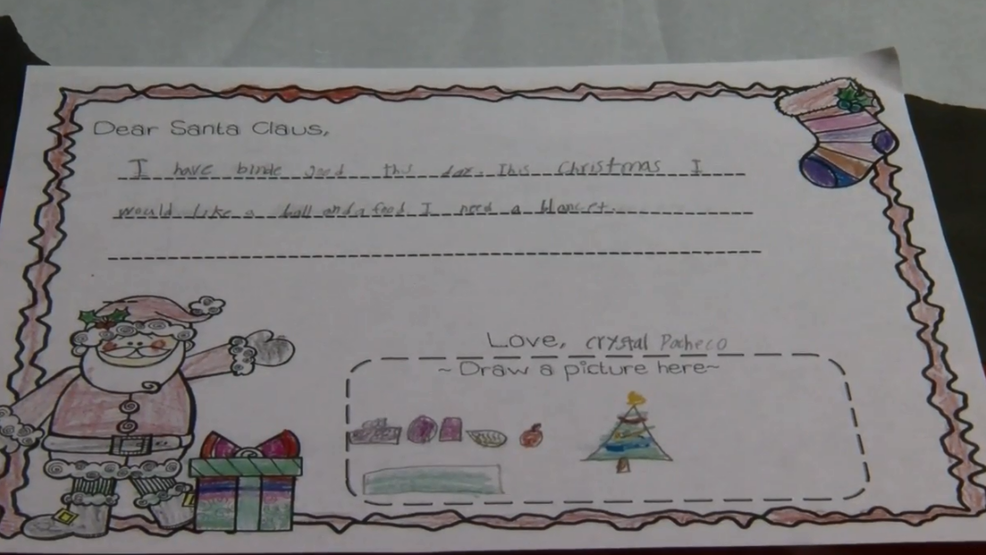 Dear Santa Claus,
I have binde good this day. This Christmas I
would like a ball and a food I need a blancet.
Love, Crystal Pacheco
~Draw a picture here~